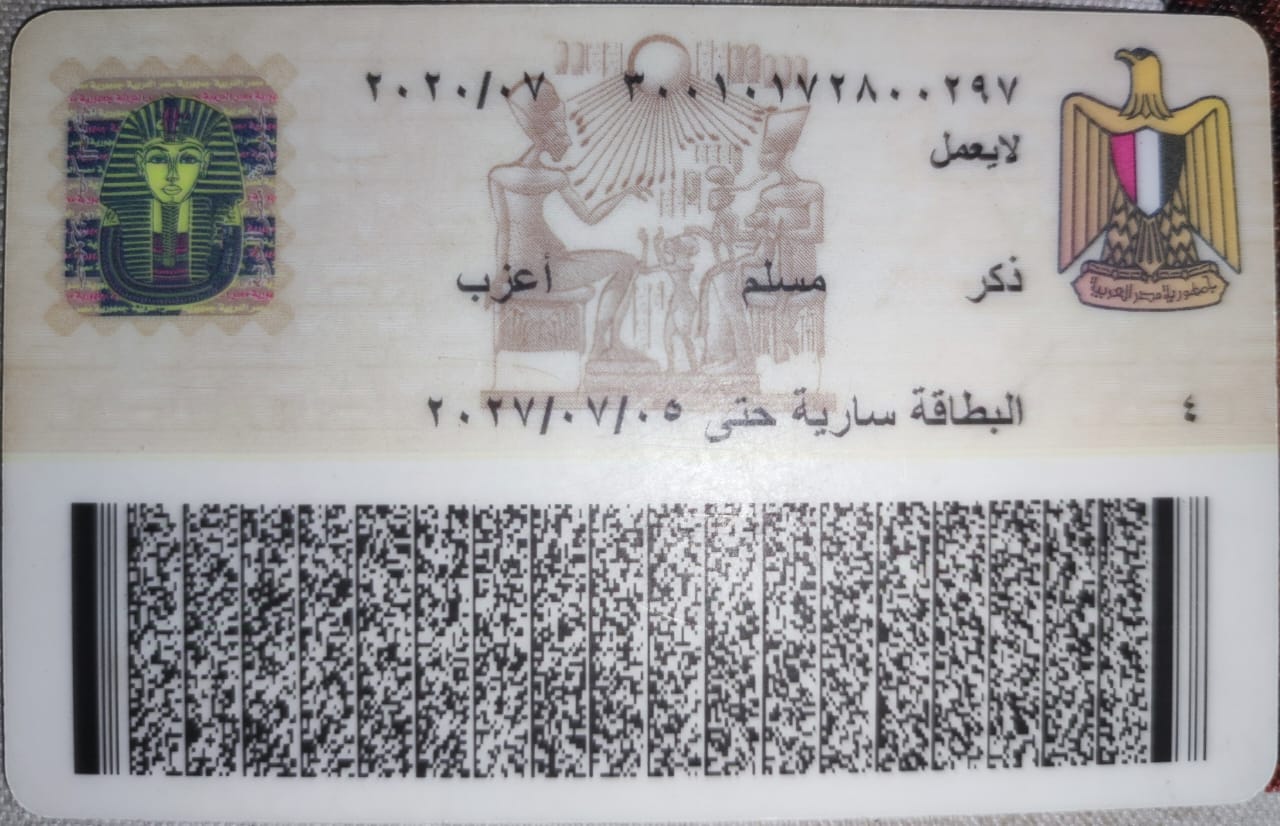 ٣٠٠١٠١٧٢٨٠٠٢٩٧ ٢٠٢٠/٠٧
لايعمل
ذكر مسلم أعزب
جمهورية مصر العربية
٤ البطاقة سارية حتى ٢٠٢٧/٠٧/٠٥